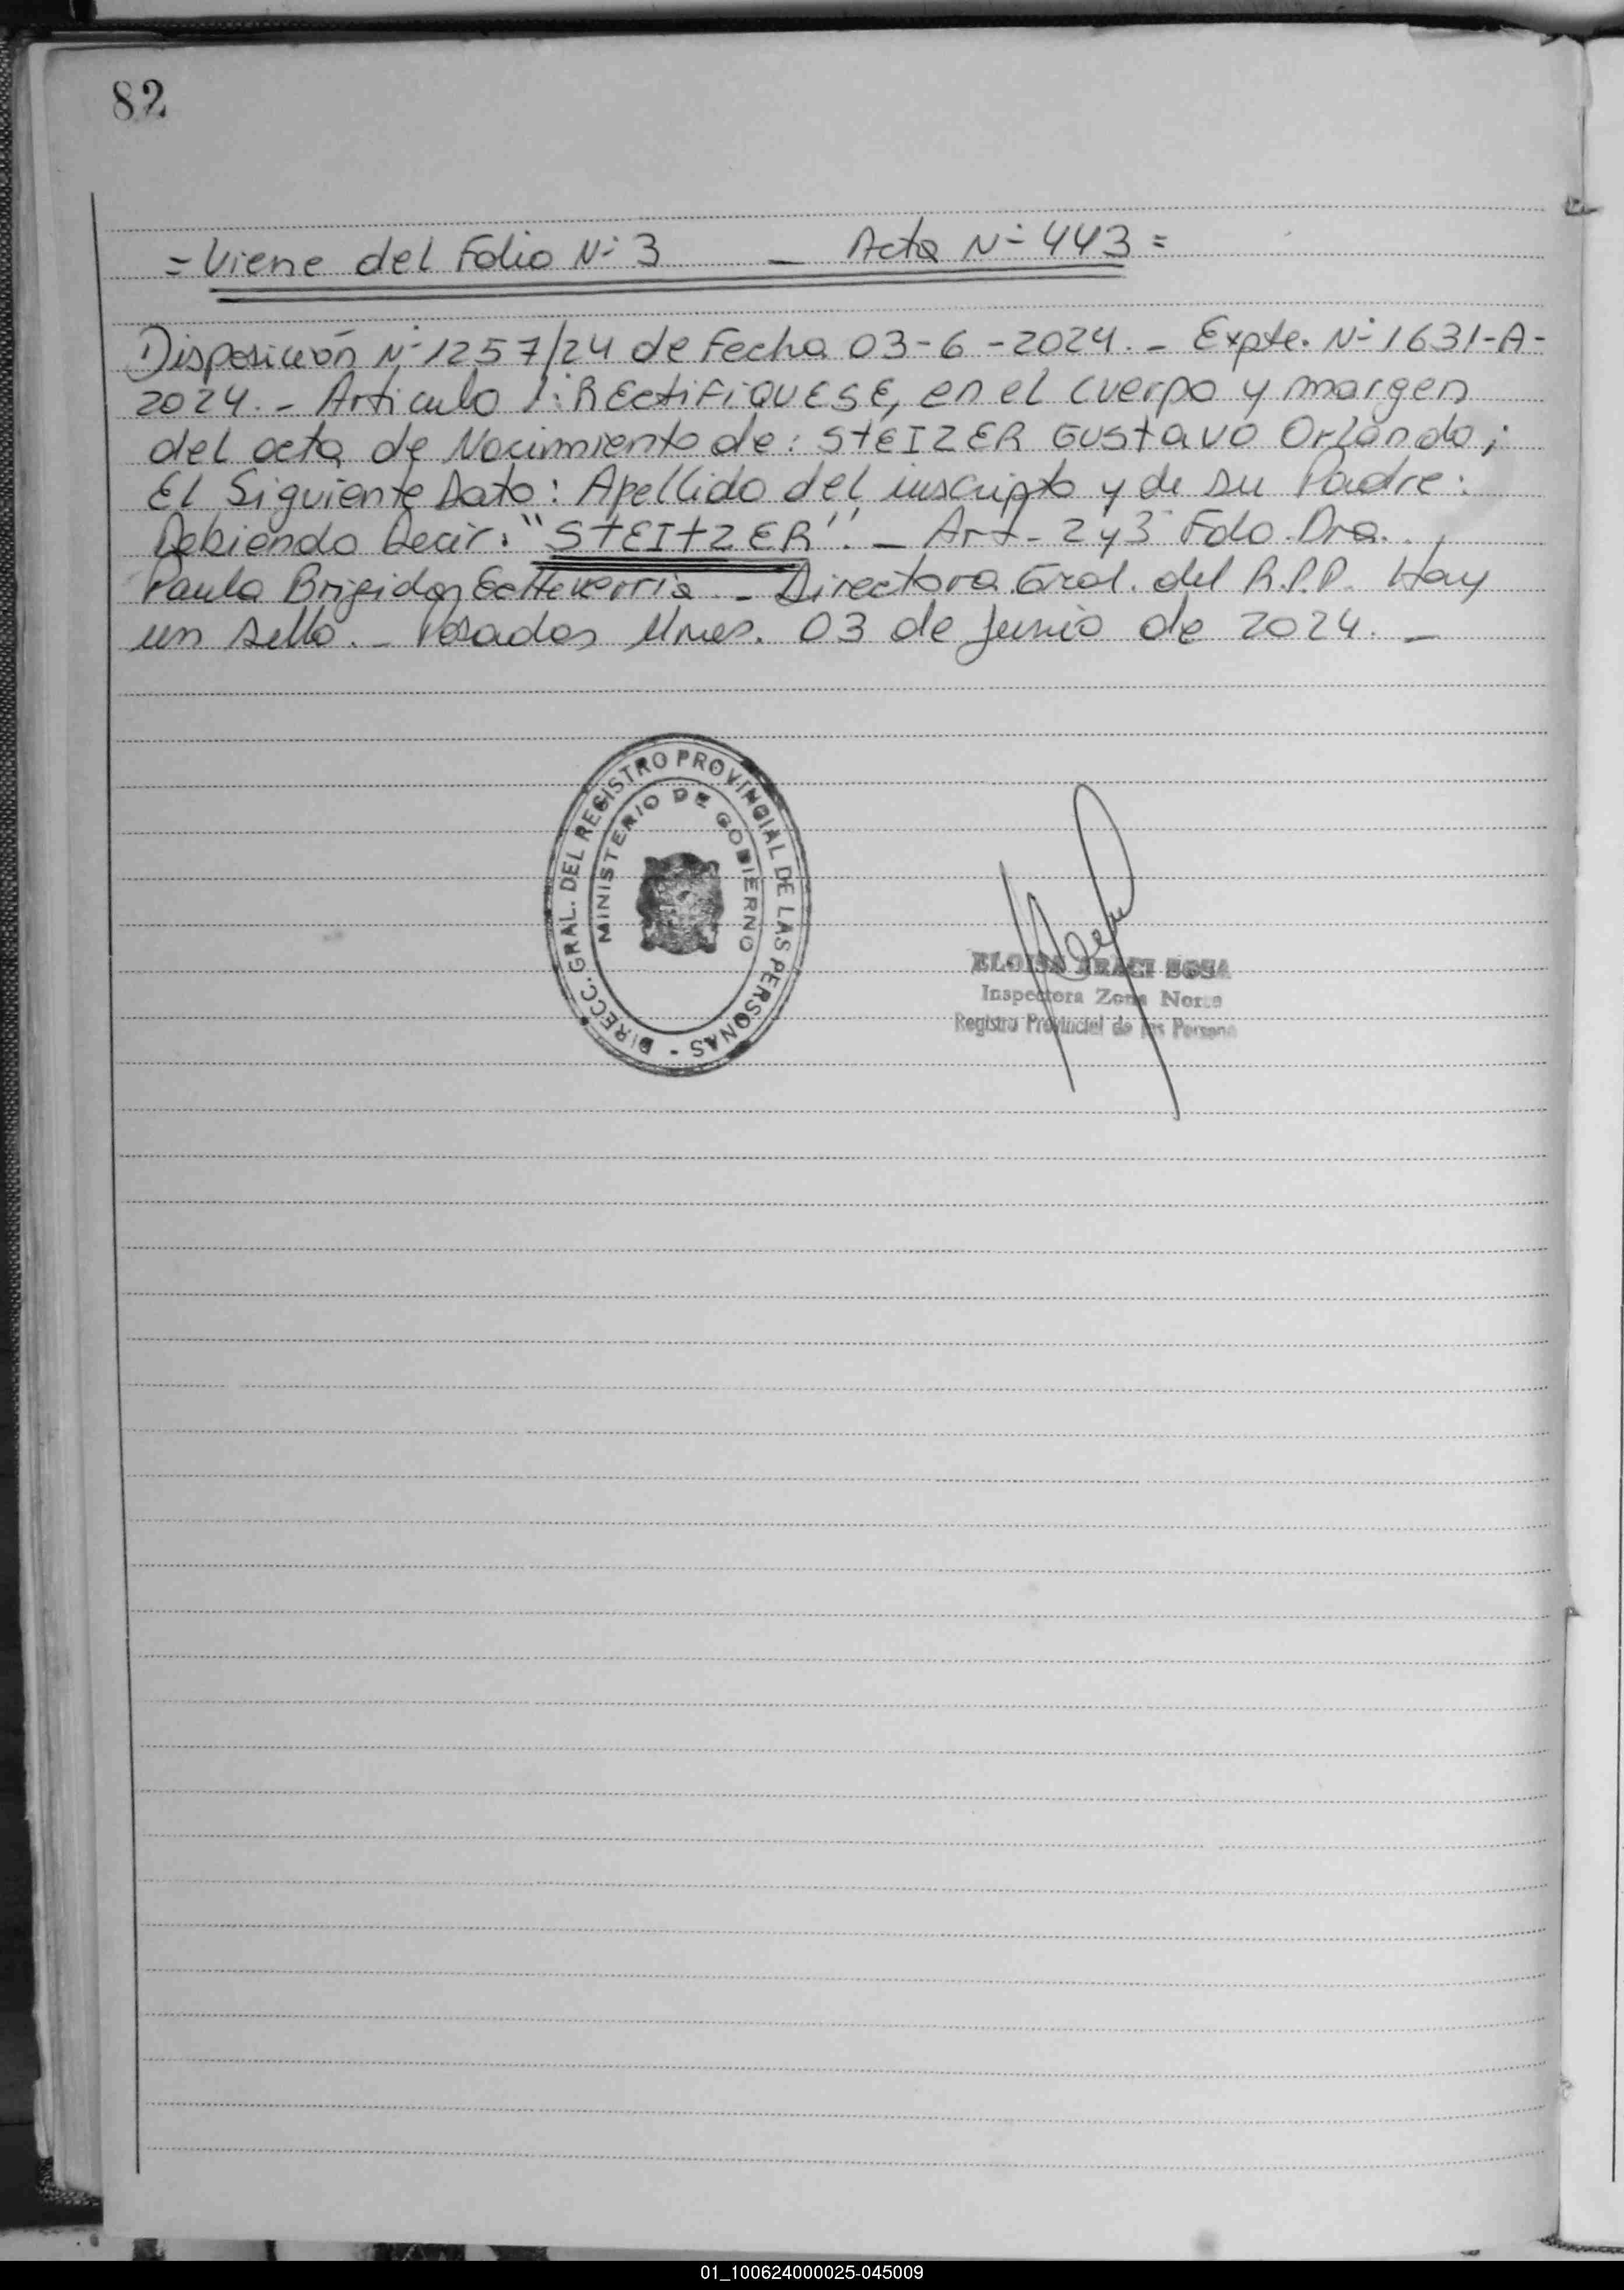 82
= Viene del Folio Nº 3 — Acta Nº 443 =
Disposición Nº 1257/24 de Fecha 03-6-2024.- Expte. Nº 1631-A-
2024.- Articulo 1º: RECtiFiQUESE, en el cuerpo y margen
del acta de Nacimiento de: StEIZER GUStavo Orlando;
El Siguiente Dato: Apellido del inscripto y de su Padre:
Debiendo Decir: "StEItZER".- Art- 2 y 3 Fdo. Dra.
Paula Brigida Echeverria.- Directora Gral. del R.P.P. Hay
un sello.- Posadas Mnes. 03 de Junio de 2024.-
DIRECC. GRAL. DEL REGISTRO PROVINCIAL DE LAS PERSONAS -
MINISTERIO DE GOBIERNO
ELOISA ARACI SOSA
Inspectora Zona Norte
Registro Provincial de las Persona
01_100624000025-045009